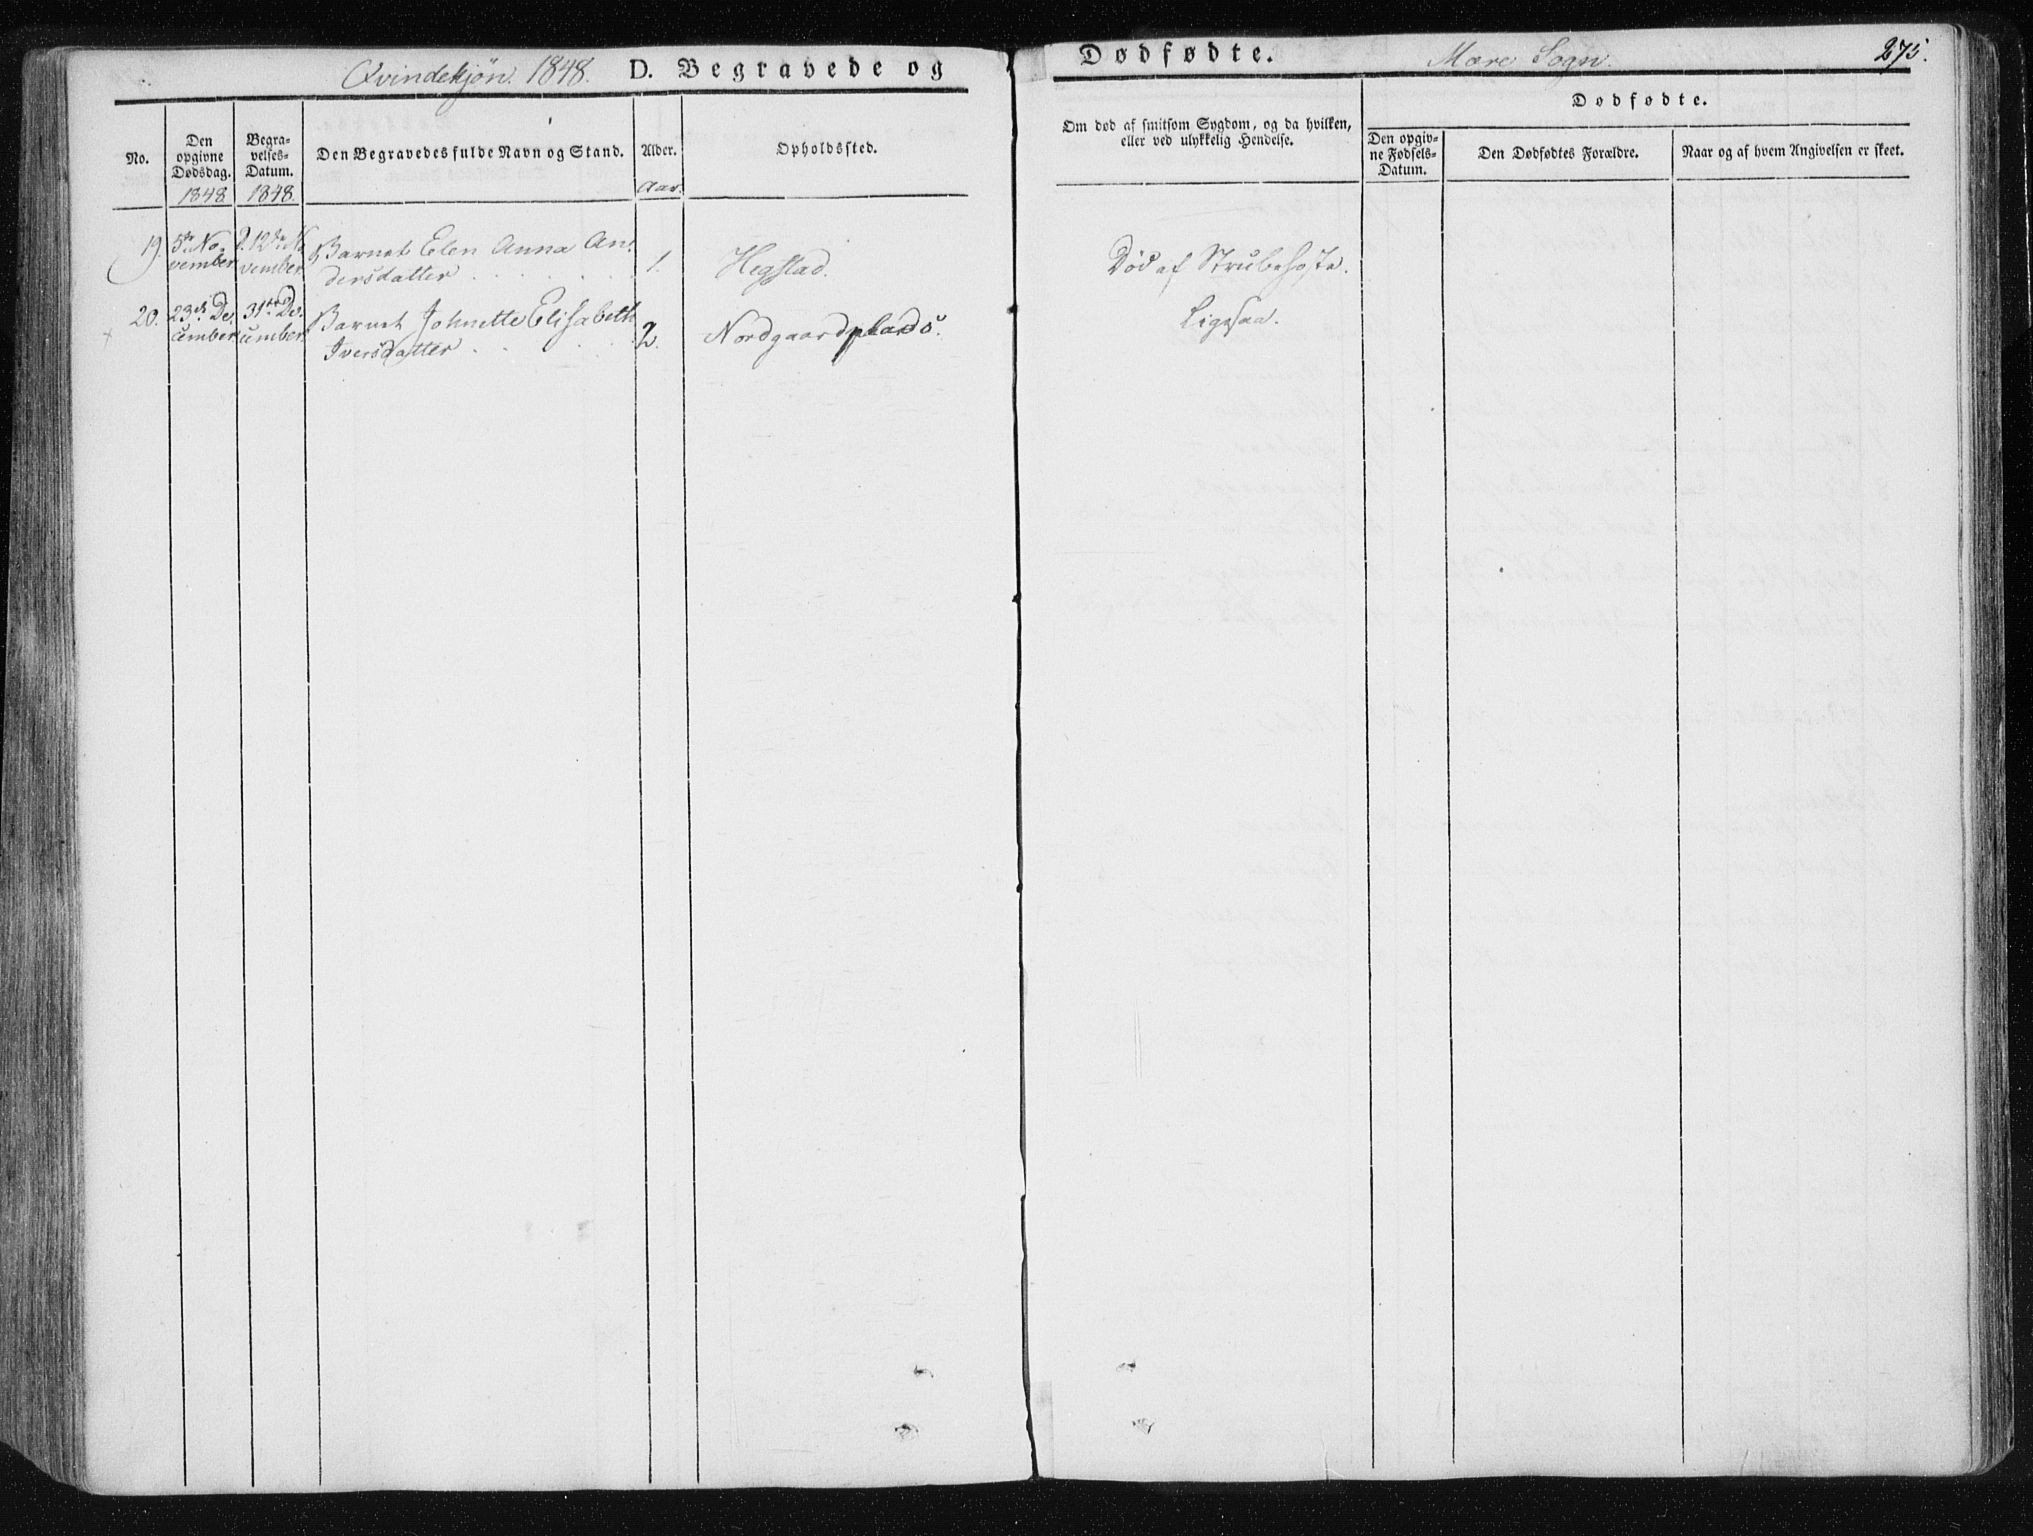 Qvindekjøn. 1848. D. Begravede og
Dødfødte. Mære Sogn. 275.
No.
Den
opgivne
Dødsdag.
1848
Begra-
velses-
Datum.
1848.
Den Begravedes fulde Navn og Stand.
Alder.
Aar.
Opholdssted.
Om død af smitsom Sygdom, og da hvilken,
eller ved ulykkelig Hendelse.
Dødfødte.
Den opgiv-
ne Fødsels-
Datum.
Den Dødfødtes Forældre.
Naar og af hvem Angivelsen er skeet.
19. 5te No- 12te No- Barnet Elen Anna An-
vember vember dersdatter 1. Hegstad. Død af Strubehoste.
20. 23de De- 31te De- Barnet Johnette Elisabeth
cember cember Iversdatter 2. Nordgaardplads. Ligesaa.